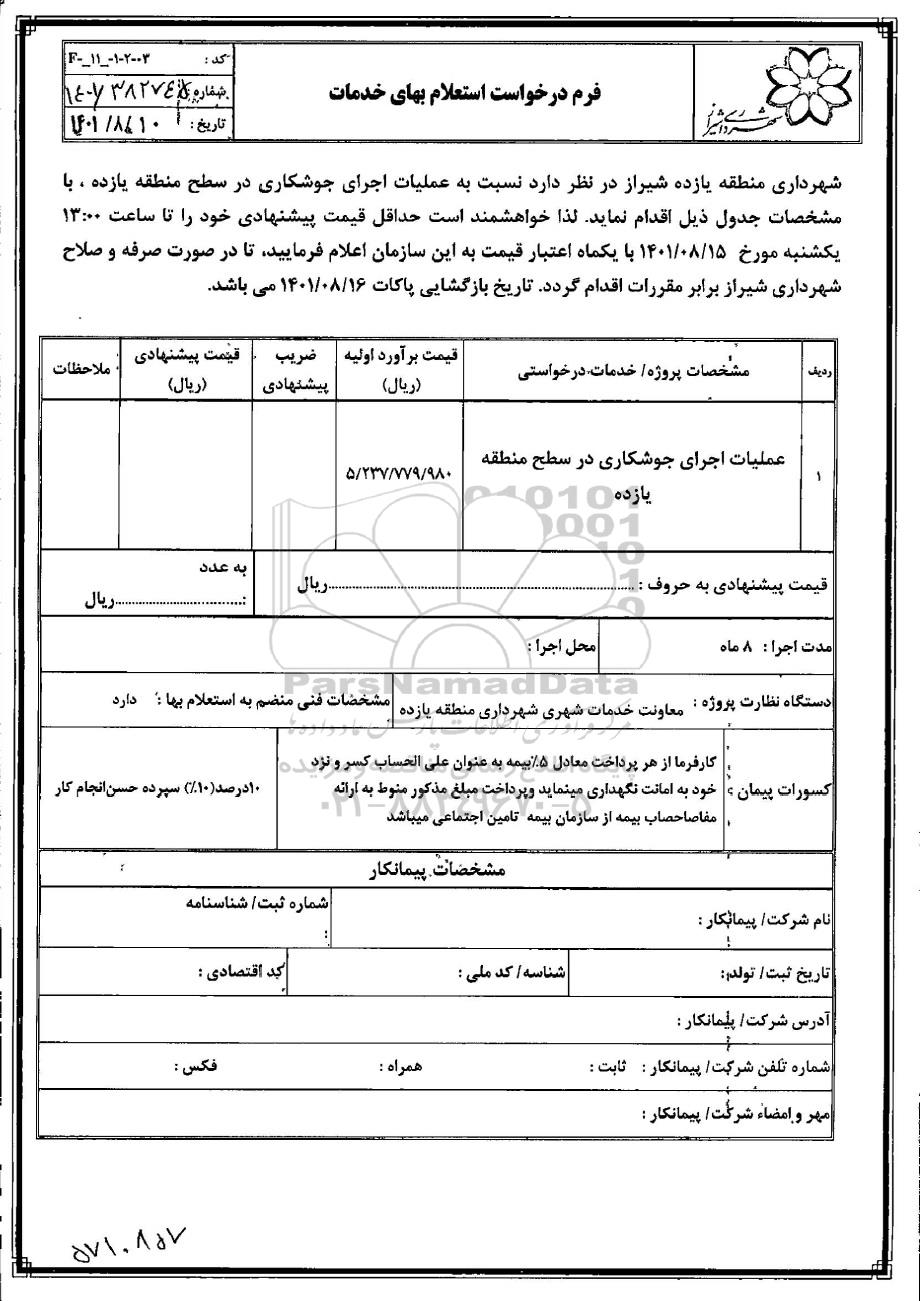 کد : F-_۱۱_-۱-۲-۰۳
شماره:
تاریخ: ۱۴۰۱/۸/۱۰
فرم درخواست استعلام بهای خدمات
شهرداری شیراز
شهرداری منطقه یازده شیراز در نظر دارد نسبت به عملیات اجرای جوشکاری در سطح منطقه یازده ، با
مشخصات جدول ذیل اقدام نماید. لذا خواهشمند است حداقل قیمت پیشنهادی خود را تا ساعت ۱۳:۰۰
یکشنبه مورخ ۱۴۰۱/۰۸/۱۵ با یکماه اعتبار قیمت به این سازمان اعلام فرمایید، تا در صورت صرفه و صلاح
شهرداری شیراز برابر مقررات اقدام گردد. تاریخ بازگشایی پاکات ۱۴۰۱/۰۸/۱۶ می باشد.
ردیف مشخصات پروژه/ خدمات درخواستی قیمت برآورد اولیه (ریال) ضریب پیشنهادی قیمت پیشنهادی (ریال) ملاحظات
۱ عملیات اجرای جوشکاری در سطح منطقه ۵/۲۳۷/۷۷۹/۹۸۰
یازده
قیمت پیشنهادی به حروف : ............................ریال به عدد
:..................ریال
مدت اجرا : ۸ ماه محل اجرا :
دستگاه نظارت پروژه : معاونت خدمات شهری شهرداری منطقه یازده مشخصات فنی منضم به استعلام بها : دارد
کسورات پیمان : کارفرما از هر پرداخت معادل ۵٪بیمه به عنوان علی الحساب کسر و نزد
خود به امانت نگهداری مینماید وپرداخت مبلغ مذکور منوط به ارائه
مفاصاحصاب بیمه از سازمان بیمه تامین اجتماعی میباشد
۱۰درصد(۱۰٪) سپرده حسن‌انجام کار
مشخصات پیمانکار
نام شرکت/ پیمانکار : شماره ثبت/ شناسنامه
:
تاریخ ثبت/ تولد: شناسه/ کد ملی : کد اقتصادی :
آدرس شرکت/ پیمانکار :
شماره تلفن شرکت/ پیمانکار : ثابت : همراه : فکس :
مهر و امضاء شرکت/ پیمانکار :
ParsNamadData
۰۲۱-۸۸۳۴۹۶۷۰-۵